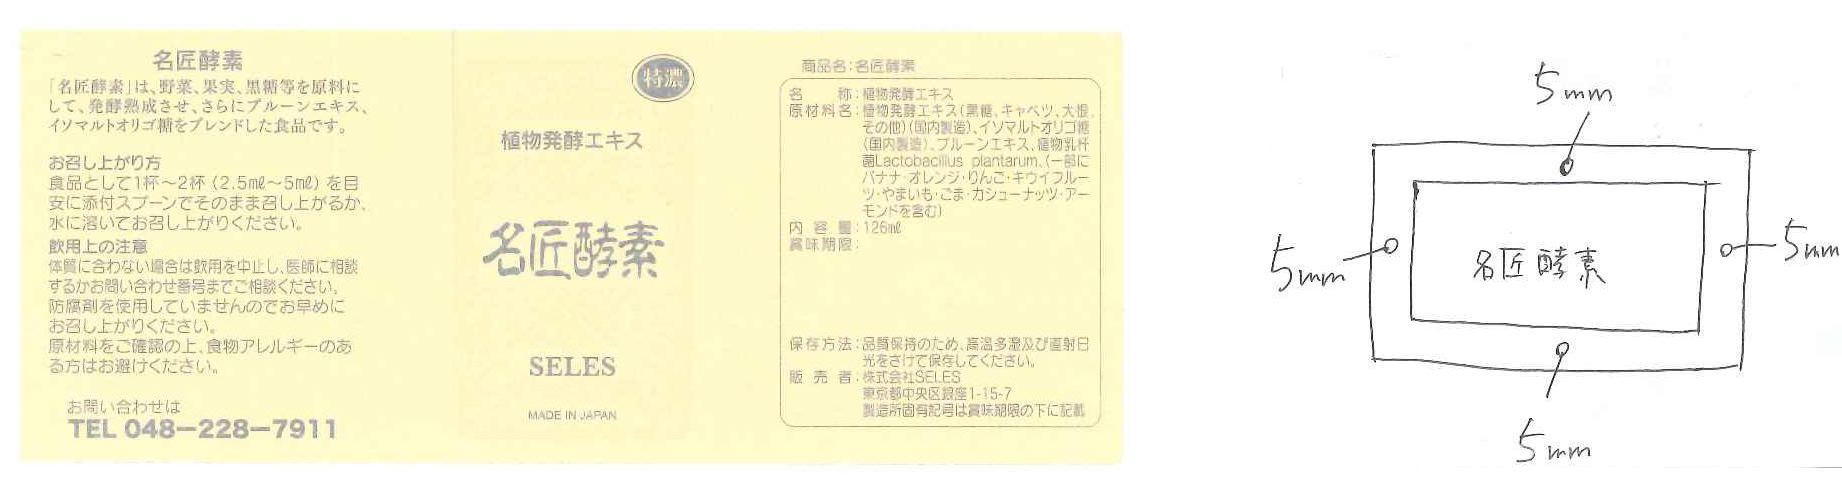 名匠酵素
「名匠酵素」は、野菜、果実、黒糖等を原料に
して、発酵熟成させ、さらにプルーンエキス、
イソマルトオリゴ糖をブレンドした食品です。
お召し上がり方
食品として1杯〜2杯（2.5mℓ〜5mℓ）を目
安に添付スプーンでそのまま召し上がるか、
水に溶いてお召し上がりください。
飲用上の注意
体質に合わない場合は飲用を中止し、医師に相談
するかお問い合わせ番号までご相談ください。
防腐剤を使用していませんのでお早めに
お召し上がりください。
原材料をご確認の上、食物アレルギーのあ
る方はお避けください。
お問い合わせは
TEL 048−228−7911
特濃
植物発酵エキス
名匠酵素
SELES
MADE IN JAPAN
商品名：名匠酵素
名　　称：植物発酵エキス
原材料名：植物発酵エキス（黒糖、キャベツ、大根、
その他）（国内製造）、イソマルトオリゴ糖
（国内製造）、プルーンエキス、植物乳杆
菌Lactobacillus plantarum、（一部に
バナナ・オレンジ・りんご・キウイフルー
ツ・やまいも・ごま・カシューナッツ・アー
モンドを含む）
内 容 量：126mℓ
賞味期限：
保存方法：品質保持のため、高温多湿及び直射日
光をさけて保存してください。
販 売 者：株式会社SELES
東京都中央区銀座1-15-7
製造所固有記号は賞味期限の下に記載
5mm
5mm
名匠酵素
5mm
5mm